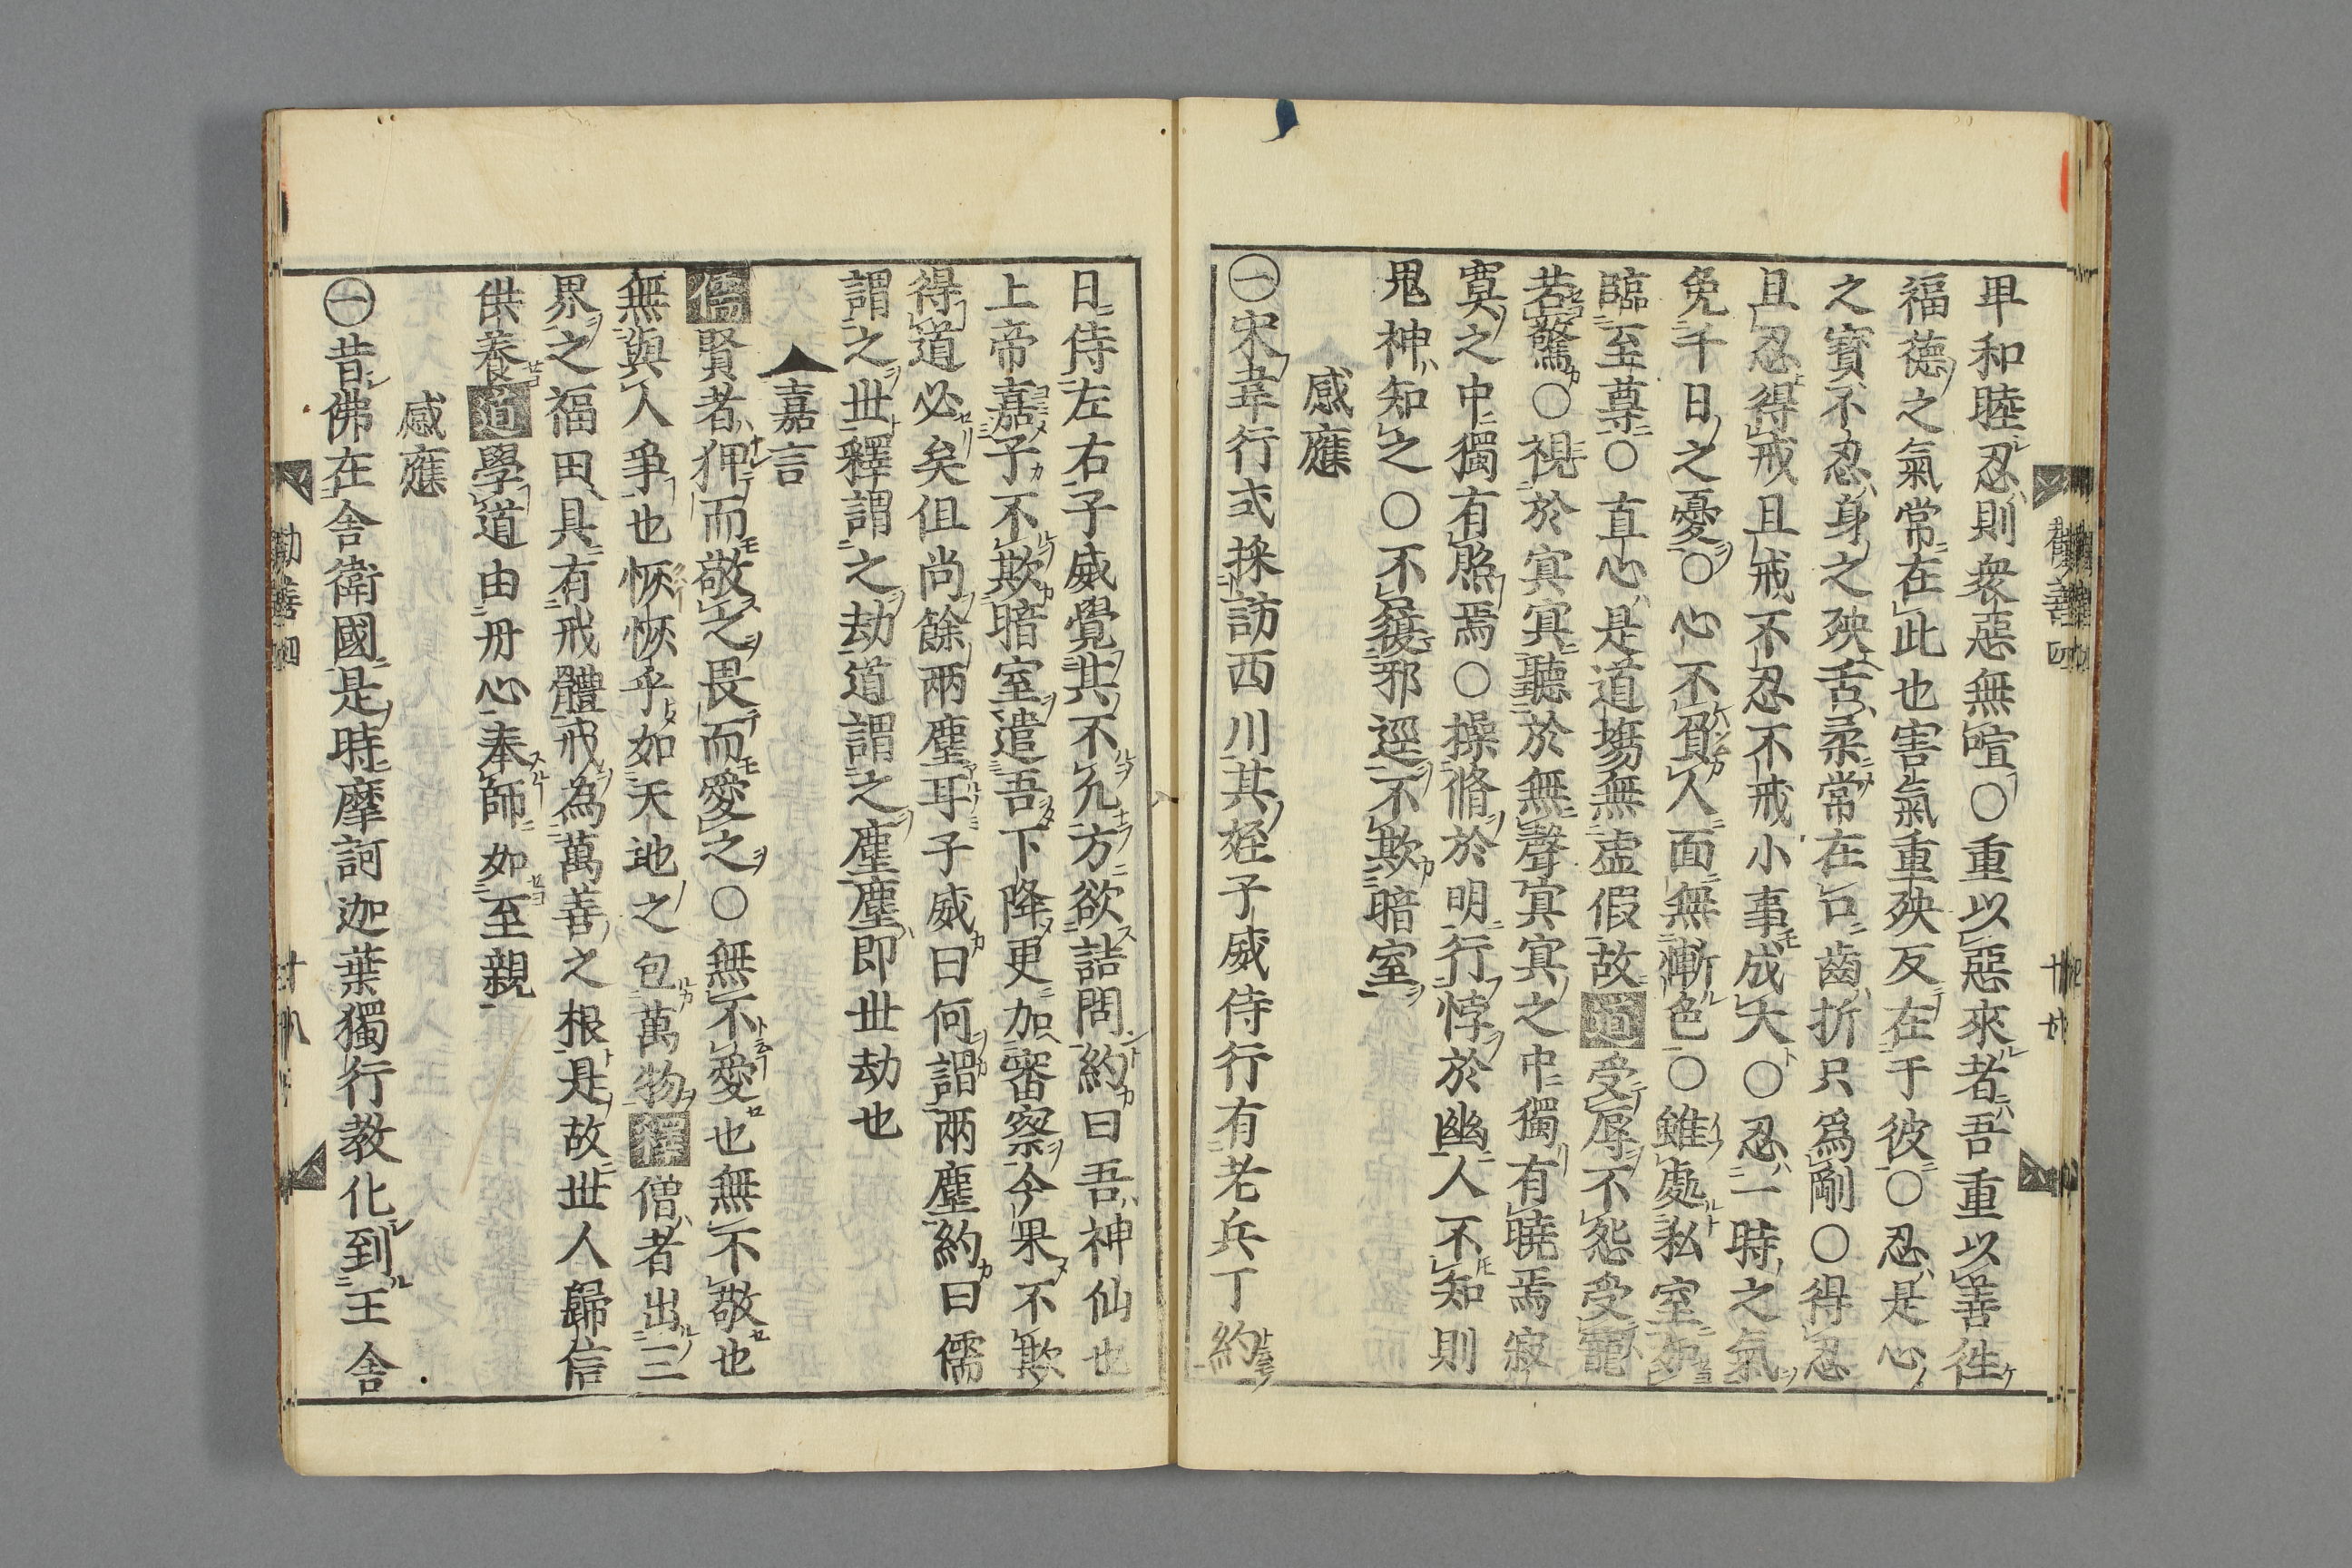 卑和睦忍則衆惡無喧○重以惡來者吾重以善徃
福德之氣常在此也害氣重殃反在于彼○忍是心
之寶不忍身之殃舌柔常在口齒折只爲剛○得忍
且忍得戒且戒不忍不戒小事成大○忍一時之氣
免千日之憂○心不負人面無慚色○雖處私室如
臨至尊○直心是道塲無虚假故道受辱不怨受寵
若驚○視於冥冥聽於無聲冥冥之中獨有曉焉寂
寞之中獨有照焉○操脩於明行悖於幽人不知則
鬼神知之○不履邪逕不欺暗室
感應
㊀宋韋行式採訪西川其姪子威侍行有老兵丁約
日侍左右子威覺其不凢方欲詰問約曰吾神仙也
上帝嘉子不欺暗室遣吾下降更加審察今果不欺
得道必矣但尚餘兩塵耳子威曰何謂兩塵約曰儒
謂之世釋謂之劫道謂之塵塵即世劫也
嘉言
儒賢者狎而敬之畏而愛之○無不愛也無不敬也
無與人爭也恢恢乎如天地之包萬物釋僧者出三
界之福田具有戒體戒為萬善之根是故世人歸信
供養道學道由丹心奉師如至親
感應
㊀昔佛在舍衛國是時摩訶迦葉獨行教化到王舍
勸善四
勸善四
十八